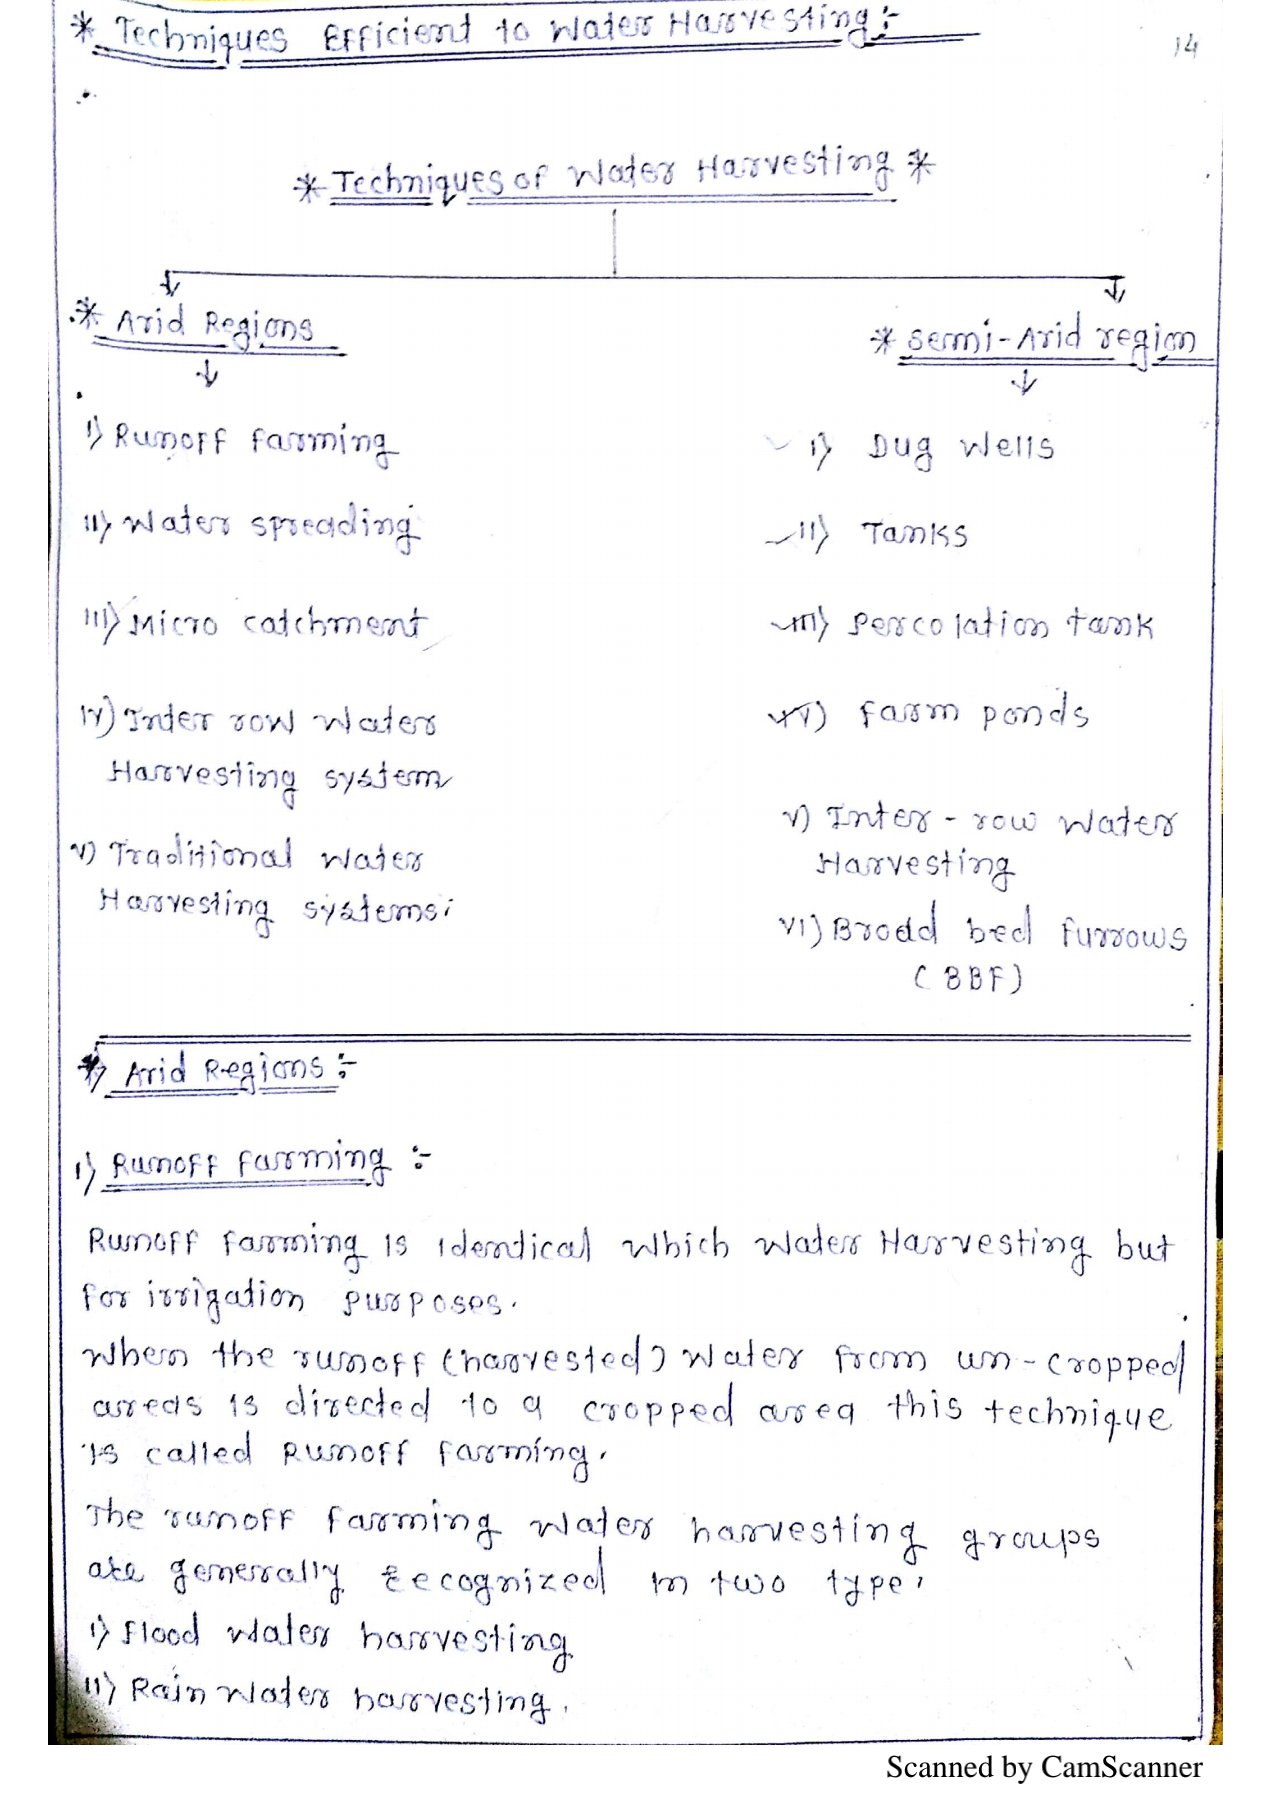 * Techniques Efficient to Water Harvesting :-
14
* Techniques of Water Harvesting *
* Arid Regions
* Semi-Arid region
i) Runoff farming
i) Dug Wells
ii) Water spreading
ii) Tanks
iii) Micro catchment
iii) Percolation tank
iv) Inter row Water
Harvesting system
iv) Farm ponds
v) Inter - row Water
Harvesting
v) Traditional Water
Harvesting systems.
vi) Broad bed furrows
(BBF)
* Arid Regions :-
i) Runoff farming :-
Runoff farming is identical which water Harvesting but
for irrigation purposes.
When the runoff (harvested) Water from un-cropped
areas is directed to a cropped area this technique
is called Runoff farming.
The runoff farming water harvesting groups
are generally recognized in two type.
i) Flood Water harvesting
ii) Rain Water harvesting.
Scanned by CamScanner